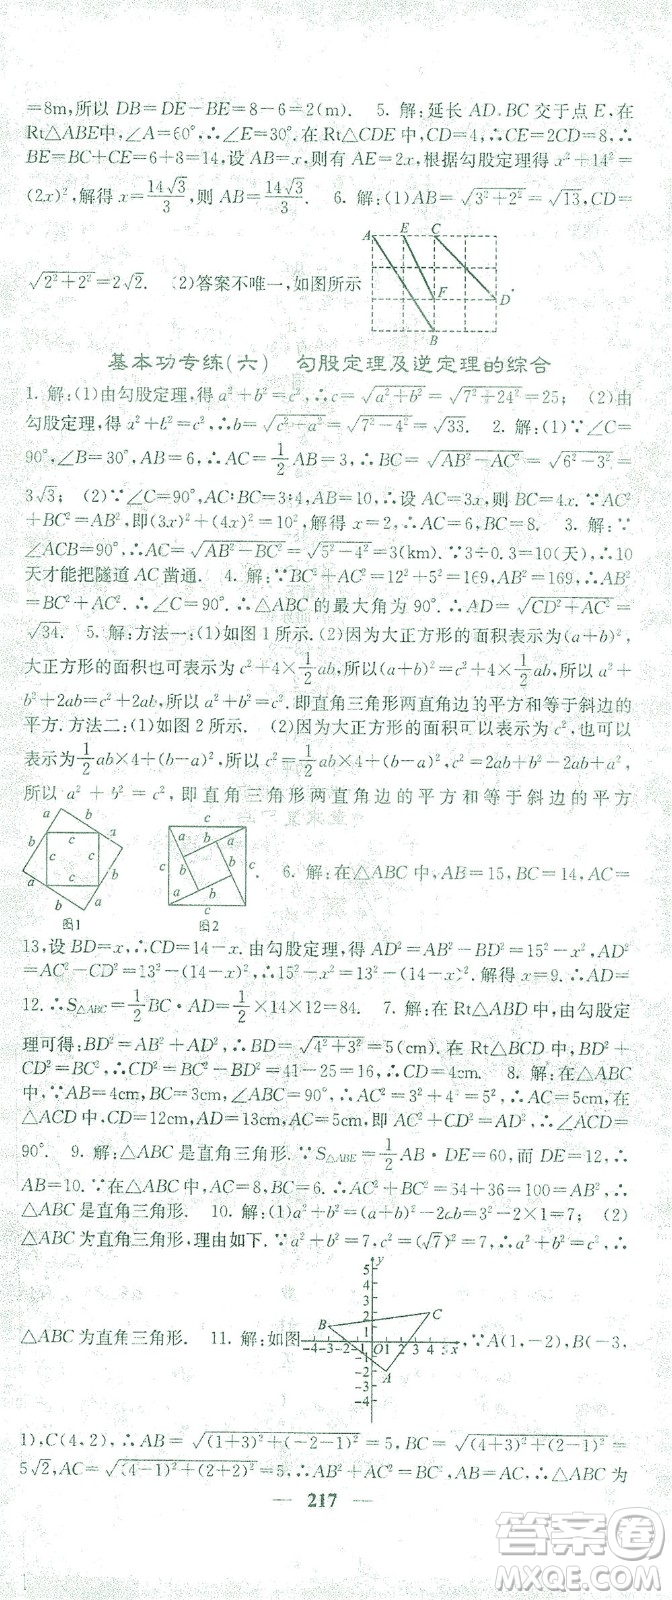 =8m,所以 DB=DE-BE=8-6=2(m). 5. 解:延长 AD,BC 交于点 E,在
Rt△ABE中,∠A=60°,∴∠E=30°.在 Rt△CDE 中,CE=2CD=8,∴
BE=BC+CE=6+8=14,设 AB=x,则有 AE=2x,根据勾股定理得 x²+14²=
(2x)²,解得 x=14√3/3,则 AB=14√3/3. 6. 解:(1)AB=√(3²+2²)=√13,CD=
√(2²+2²)=2√2. (2)答案不唯一,如图所示
A E C
F D
B
基本功专练(六) 勾股定理及逆定理的综合
1. 解:(1)由勾股定理,得 a²+b²=c²,∴c=√(a²+b²)=√(7²+24²)=25; (2)由
勾股定理,得 a²+b²=c²,∴b=√(c²-a²)=√(7²-4²)=√33. 2. 解:(1)∵∠C=
90°,∠B=30°,∴AC=1/2AB=3,∴BC=√(AB²-AC²)=√(6²-3²)=
3√3; (2)∵∠C=90°,AC∶BC=3∶4,AB=10,∴设 AC=3x,则 BC=4x.∵AC²
+BC²=AB²,即(3x)²+(4x)²=10²,解得 x=2,∴AC=6,BC=8. 3. 解:∵
∠ACB=90°,∴AC=√(AB²-BC²)=√(5²-4²)=3(km).∵3÷0.3=10(天),∴10
天才能把隧道 AC 凿通. 4. 解:∵AC²+BC²=12²+5²=169,AB²=169,∴AC²
+BC²=AB²,∴∠C=90°.∴△ABC 的最大角为 90°.∴AD=√(CD²+AC²)=
√34. 5. 解:方法一:(1)如图 1 所示.(2)因为大正方形的面积表示为(a+b)²,
大正方形的面积也可表示为 c²+4×1/2ab,所以(a+b)²=c²+4×1/2ab,所以 a²+
b²+2ab=c²+2ab,所以 a²+b²=c².即直角三角形两直角边的平方和等于斜边的
平方.方法二:(1)如图 2 所示. (2)因为大正方形的面积可以表示为 c²,又可以
表示为1/2ab×4+(b-a)²,所以 c²=1/2ab×4+(b-a)²,c²=2ab+b²-2ab+a²,
所以 a²+b²=c²,即直角三角形两直角边的平方和等于斜边的平方
a b c
图1 图2
. 6. 解:在△ABC 中,AB=15,BC=14,AC=
13,设 BD=x,∴CD=14-x.由勾股定理,得 AD²=AB²-BD²=15²-x²,AD²
=AC²-CD²=13²-(14-x)²,∴15²-x²=13²-(14-x)².解得 x=9.∴AD=
12.∴S△ABC=1/2BC·AD=1/2×14×12=84. 7. 解:在 Rt△ABD 中,由勾股定
理可得:BD²=AB²+AD²,∴BD=√(4²+3²)=5(cm).在 Rt△BDC 中,BD²+
CD²=BC²,∴CD²=BC²-BD²=13²-5²=12²,∴CD=12cm. 8. 解:在△ABC
中,∵AB=4cm,BC=3cm,∠ABC=90°,∴AC²=4²+3²=5²,∴AC=5cm,在
△ACD 中,CD=12cm,AD=13cm,AC=5cm,∴AC²+CD²=AD²,∴∠ACD=
90°. 9. 解:△ABC 是直角三角形.∵S△ABE=1/2AB·DE=60,而 DE=12,∴
AB=10.∵在△ABC 中,AC=8,BC=6.∴AC²+BC²=64+36=100=AB²,∴
△ABC 是直角三角形. 10. 解:(1)a²+b²=(a+b)²-2ab=16-2×4.5=7; (2)
△ABC为直角三角形,理由如下.∵a²+b²=7,c²=(√7)²=7,∴a²+b²=c²,∴
△ABC 为直角三角形. 11. 解:如图
y 5 4 3 2 1
B C
-4-3-2-1 O 1 2 3 4 5 x
-1 -2 -3 -4
A
,∵A(1,-2),B(-3,
1),C(4,2),∴AB=√((1+3)²+(-2-1)²)=5,BC=√((4+3)²+(2-1)²)=
5√2,AC=√((4-1)²+(2+2)²)=5,∴AB²+AC²=BC²,AB=AC,∴△ABC 为
— 217 —
答案圈
MXQE.COM